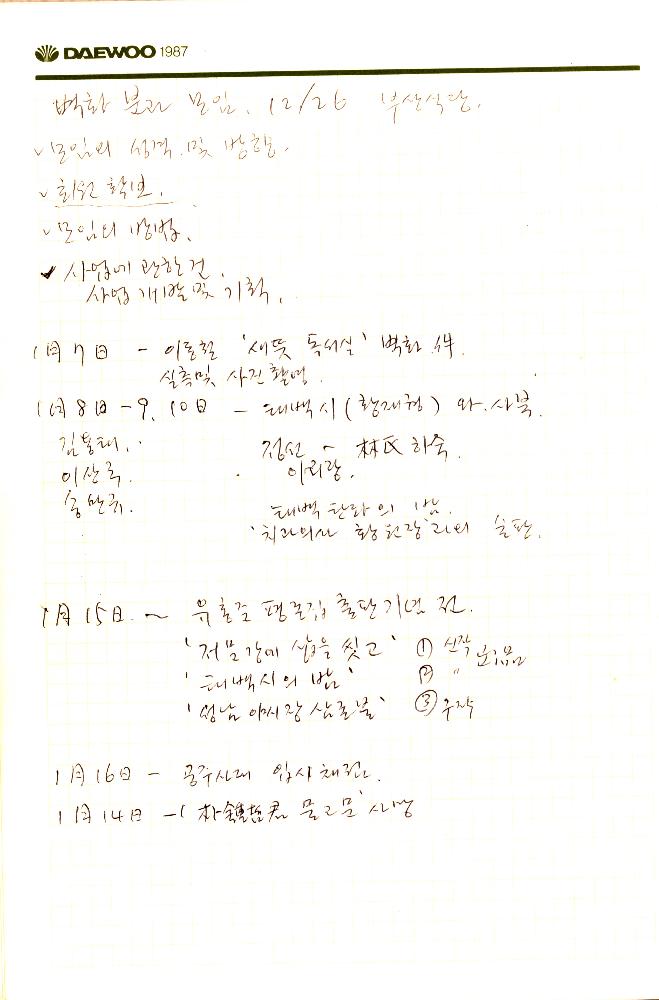 DAEWOO 1987
벽화 분과 모임. 12/26 부산식당.
✓모임의 성격 및 방향.
✓회원 확보.
✓모임의 방법.
✓사업에 관한 건.
사업 개발 및 기획.
1月 7日 - 이동철 '새뜻 독서실' 벽화 件.
실측및 사진촬영.
1月 8日 - 9, 10日 - 태백시 (황재형) 와 사북.
김봉태.. 정선 ~ 林氏 하숙.
이
송만규. 태백 탄좌의 밤.
'치과의사 황원장'과의 술판.
1月 15日. ~ 유홍준 평론집 출판기념 전.
'저문강에 삽을 씻고' ① 신작
'태백시의 밤' ② 〃 출품
'성남 야시장 삼호불' ③ 구작
1月 16日 - 공주사대 입시채점.
1月 14日 - 朴鍾哲君 물고문' 사망